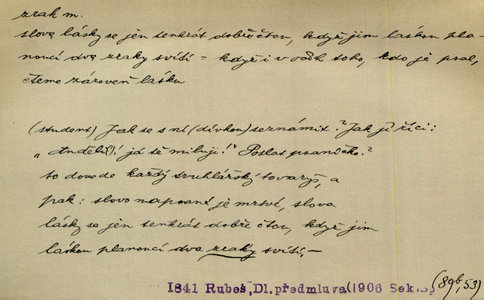 zrak m.
slova lásky se jen tenkrát dobře čtou, když jim láskou pla-
noucí dva zraky svítí – když i v očích toho, kdo je psal,
čteme zároveň lásku
(student) Jak se s ní (dívkou) seznámit? Jak jí říci:
„Andělíčku! já tě miluji!" Poslat psaníčko?
to dovede každý truhlářský tovaryš, a
pak: slovo napsané je mrtvé, slova
lásky se jen tenkrát dobře čtou, když jim
láskou planoucí dva zraky svítí. –
1841 Rubeš, D1. předmluva (1906 Sek.
(89b, 53)